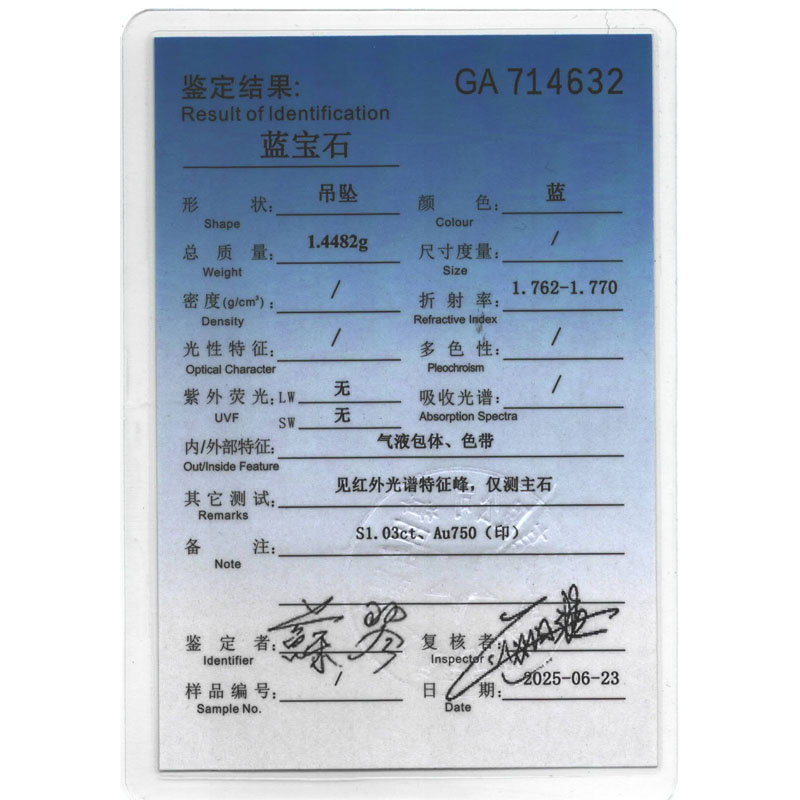 鉴定结果:
GA 714632
Result of Identification
蓝宝石
形状: 吊坠 颜色: 蓝
Shape Colour
总质量: 1.4482g 尺寸度量: /
Weight Size
密度(g/cm³): / 折射率: 1.762-1.770
Density Refractive Index
光性特征: / 多色性: /
Optical Character Pleochroism
紫外荧光: LW 无 吸收光谱: /
UVF SW 无 Absorption Spectra
内/外部特征: 气液包体、色带
Out/Inside Feature
其它测试: 见红外光谱特征峰,仅测主石
Remarks
备注: S1.03ct、Au750(印)
Note
鉴定者: 复核者:
Identifier Inspector
样品编号: / 日期: 2025-06-23
Sample No. Date